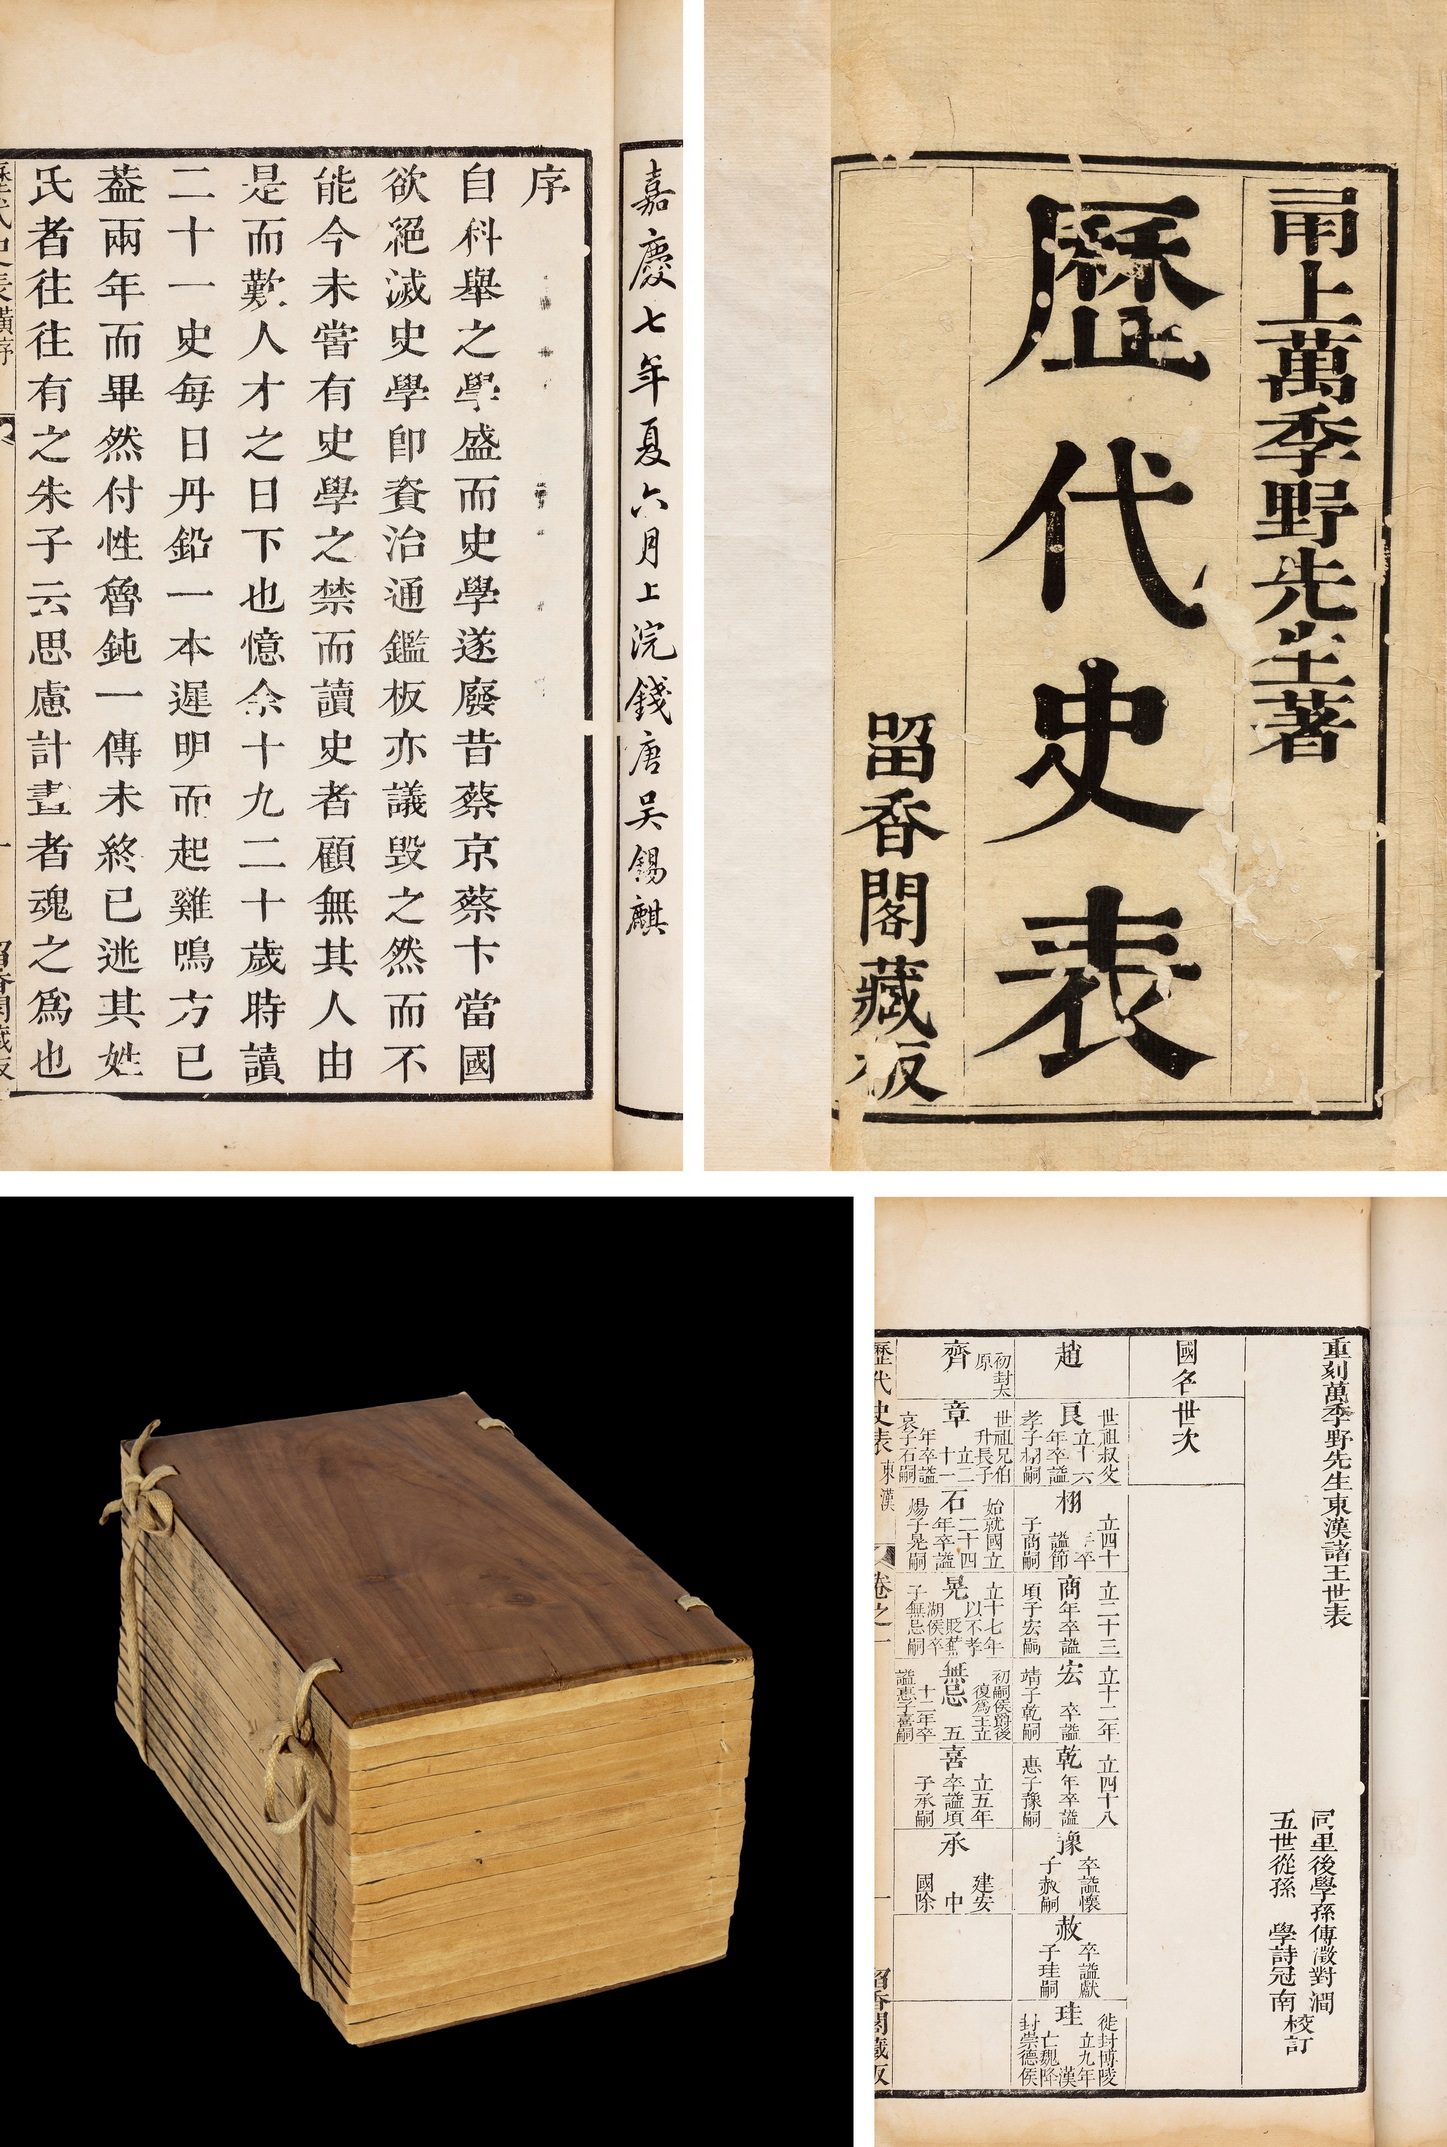 嘉慶七年夏六月上浣錢唐吳錫麒
序
自科舉之學盛而史學遂廢昔蔡京蔡卞當國
欲絕滅史學卽資治通鑑板亦議毀之然而不
能今未嘗有史學之禁而讀史者顧無其人由
是而歎人才之日下也憶余十九二十歲時讀
二十一史每日丹鉛一本遲明而起雞鳴方已
葢兩年而畢然付性魯鈍一傳未終已迯其姓
氏者往往有之朱子云思慮計晝者魂之爲也
歷代史表黃序
留香閣藏板
甬上萬季野先生著
歷代史表
留香閣藏板
重刻萬季野先生東漢諸王世表
同里後學孫傳澂對澗
五世從孫 學詩冠南
校訂
國名世次
趙
良 世祖叔父立十六年卒謚孝子栩嗣
栩 立四十年卒謚節子商嗣
商 立二十三年卒謚頃子宏嗣
宏 立十二年卒謚靖子乾嗣
乾 立四十八年卒謚惠子豫嗣
豫 卒謚懷子赦嗣
赦 卒謚獻子珪嗣
珪 徙封博陵立九年漢亡魏降封崇德侯
齊 初封太原
章 世祖兄伯升長子立二十一年卒謚哀子石嗣
石 始就國立二十四年卒謚煬子晃嗣
晃 立十七年以不孝貶蕪湖侯卒子無忌嗣
無忌 初嗣侯爵後復爲王立五十二年卒謚惠子喜嗣
喜 立五年卒謚頃子承嗣
承 建安中國除
歷代史表 東漢
卷之一
一
留香閣藏板